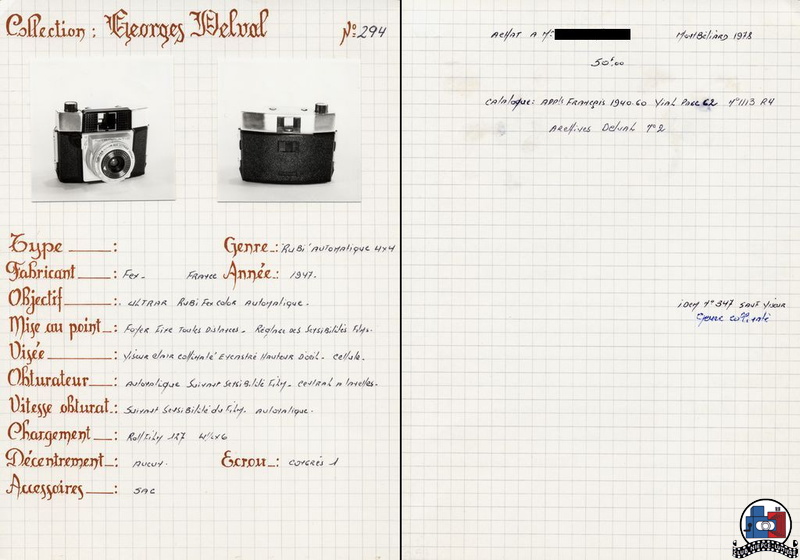 Collection : Georges Delval N°: 294
Type : Genre : Rubi Automatique 4x4
Fabricant : Fex - France Année : 1947.
Objectif : ULTRAR Rubi Fexcolor Automatique.
Mise au point : Foyer Fixe Toutes Distances - Réglage des Sensibilités Film.
Visée : Viseur clair collimaté Excentré Hauteur D'œil - Cellule.
Obturateur : Automatique Suivant Sensibilité Film - Central à lamelles.
Vitesse obturat. : Suivant Sensibilité du Film. Automatique.
Chargement : Roll Film 127
Décentrement : Aucun. Ecrou : Congrès 1
Accessoires : SAC
Achat A Mr Montbéliard 1978
50f.00
Catalogue: Appls Français 1940.60 Vial Page 62 N°1113 R4
Archives Delval N°2
idem N°347 sauf Viseur